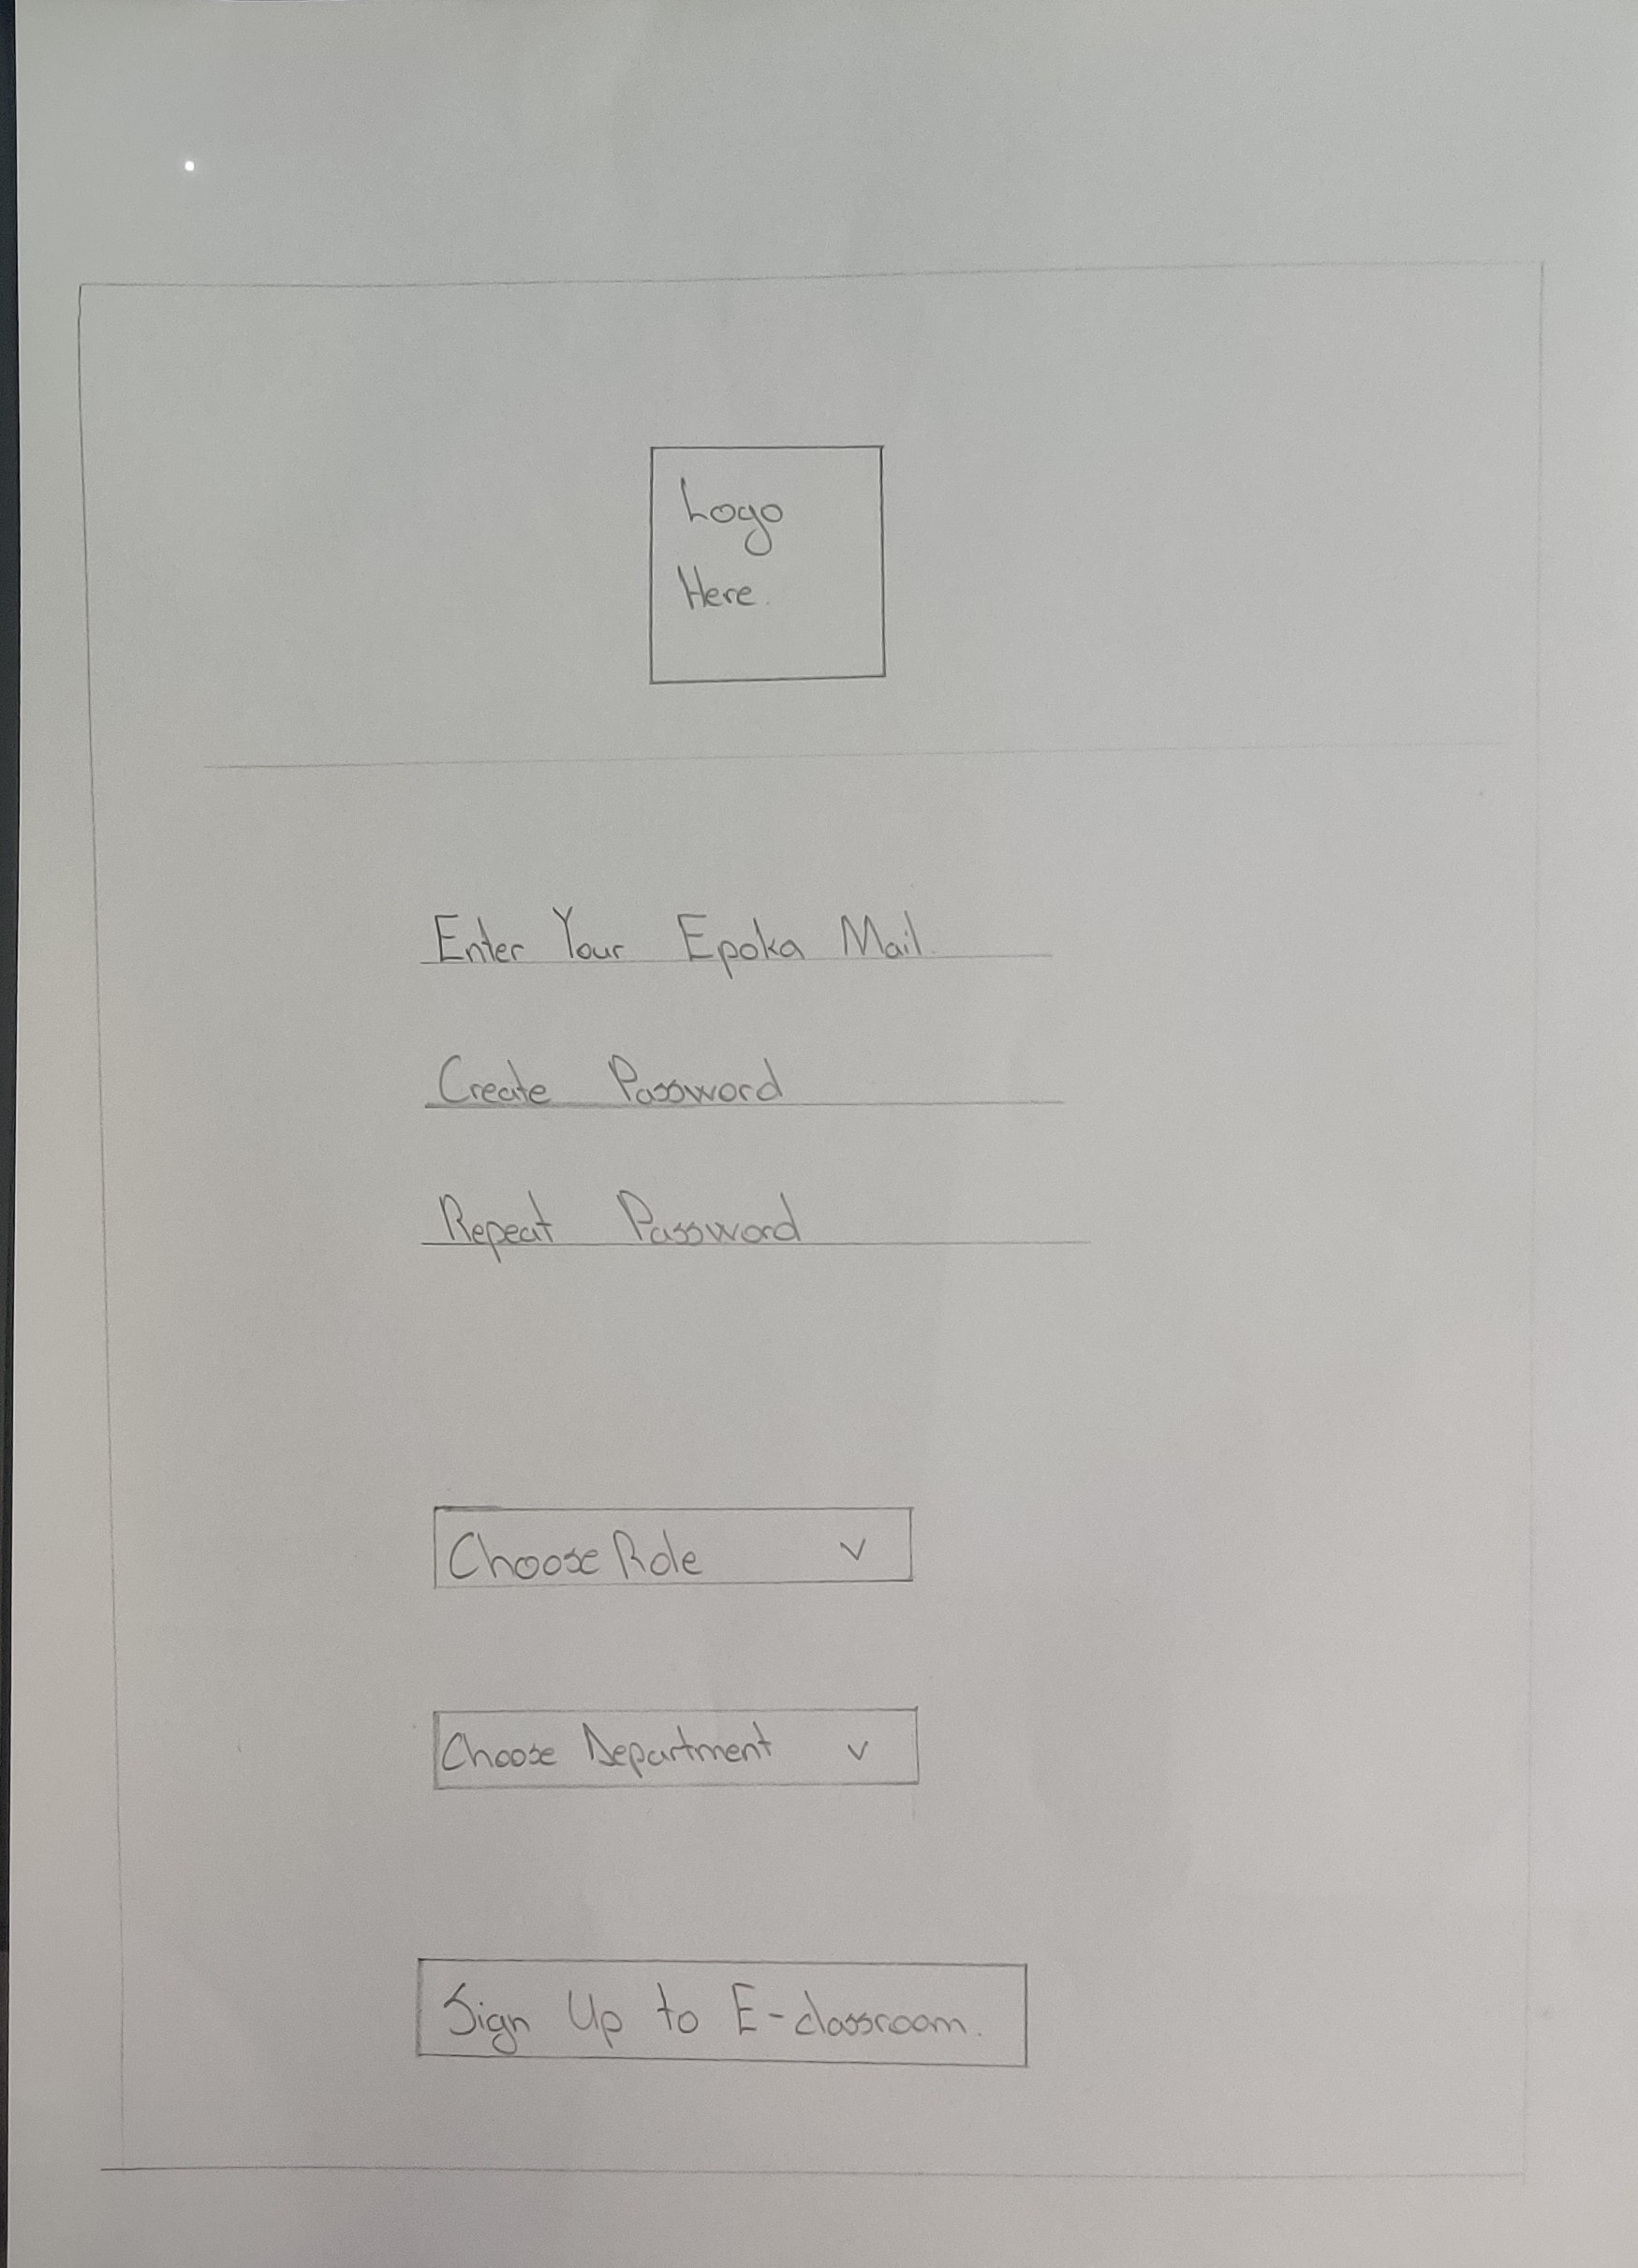 Logo
Here.
Enter Your Epoka Mail.
Create Password
Repeat Password
Choose Role v
Choose Department v
Sign Up to E-classroom.